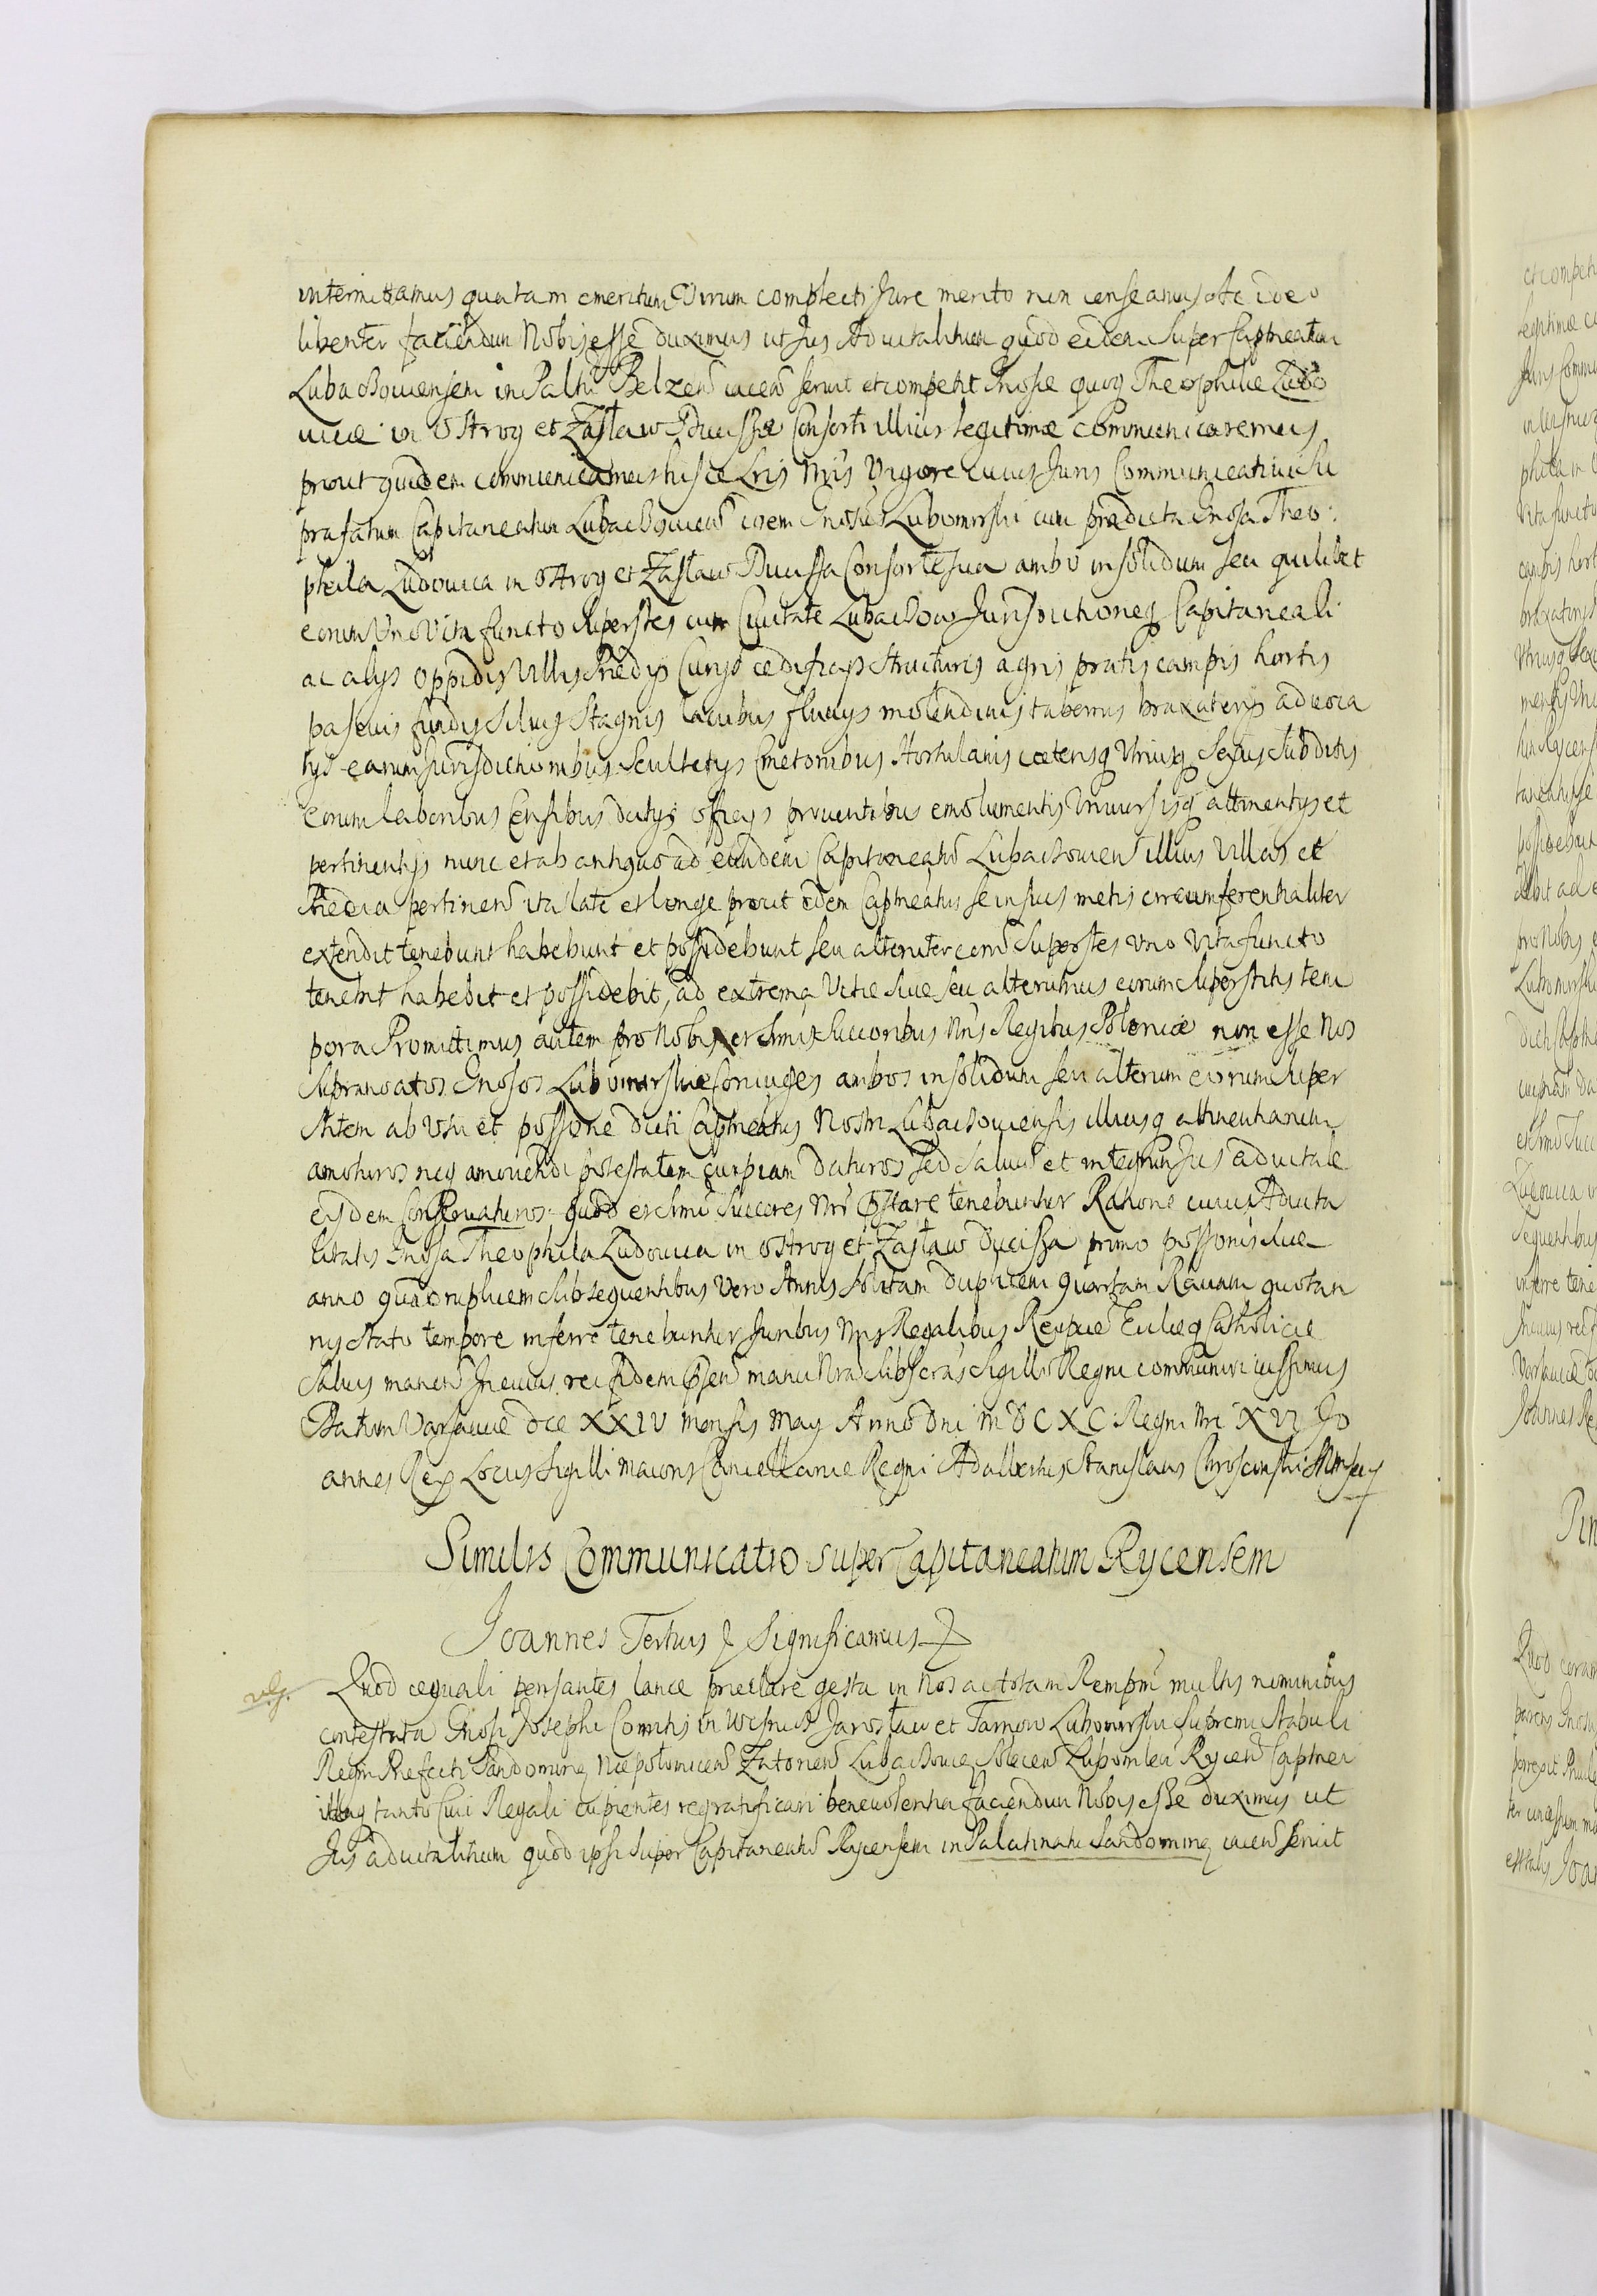 intermittamus quatam emeritum Virum complecti Jure merito non censeamus Ac ideo
libenter faciendum Nobis esse duximus ut Jus Advitalitium quod eidem super Capitneatum
Lubaczoviensem in Palttu Belzen iacen servit et competit Gnosae quoq Theophilae Ludo
vicae in Ostrog et Zasław Ducissae Consorti illius legitimae communicaremus
prout quidem communicamus hisce Lris Nris Vigore cuius Juris Communicativi su
prafatum Capitaneatum Lubaczovien idem Gnosus Lubomirski cum praedicta Gnosa Theo:
phila Ludovica in Ostrog et Zasław Ducissa Consorte sua ambo in solidum seu quilibet
eorum Uno Vita functo superstes cum Civitate Lubaczow Jurisdictioneq Capitaneali
ac alys Oppidis Villis Praedys Curys aedificys structuris agris pratis campis hortis
pascuis fundis Silvis Stagnis lacubus fluvys molendinis tabernis braxaterys advoca
tys earum Jurisdictionibus Scultetys Cmetonibus Hortulanis caeterisq Utriusq Sexus Subditis
eorum laboribus Censibus datys officys proventibus emolumentis Universisq attinentys et
pertinentys nunc et ab antiquo ad eundem Capitaneatu Lubaczovien illius Villas et
Praedia pertinen ita late et longe prout idem Capitneatus se in suis metis circumferentialiter
extendit tenebunt habebunt et possidebunt seu alteruter eoru Superstes Uno Vita functo
tenebit habebit et possidebit, ad extrema Vitae suae seu alterutrius eorum Superstitis tem
pora Promittimus autem pro Nobis et Srmis Succoribus Nris Regibus Poloniae non esse Nos
supranoatos Gnosos Lubomirskie Coniuges ambos in solidum seu alterum eorum super
stitem ab Usu et possone dicti Capitneatus Nostri Lubaczoviensis illiusq attinentiarum
amoturos neq amovendi potestatem cuipiam daturos sed salvu et integrum Jus advitale
eisdem conservaturos quod et Srmi Succores Nri Pstare tenebuntur Ratione cuius Advita
litatis Gnosa Theophila Ludovica in Ostrog et Zasław Ducissa primo possonis suae
anno quadruplicem subsequentibus Vero Annis solitam duplicem quartam Ravam quotan
nis stato tempore inferre tenebuntur Juribus Nris Regalibus Reipue Eccliaeq Catholicae
Salvis manen In cuius rei fidem Psen manu Nra subscras Sigillo Regni communiri iussimus
Datum Varsaviae die XXIV mensis May Anno Dni MDCXC Regni Nri XVI Jo
annes Rex Locus Sigilli maioris Cancellariae Regni Adalbertus Stanislaus Chroscinski SRMSecrs
Similis Communicatio super Capitaneatum Rycensem
Joannes Tertius Significamus
Quod aequali pensantes lance praeclare gesta in Nos ac totam Rempm multis nominibus
contestata Gnosi Josephi Comitis in Wisnicz Jarosław et Tarnow Lubomirski Supremi Stabuli
Regni Praefecti Sandomirien Niepolomicen Zatorien Lubaczovien Solecen Lubomlen Rycen Capitnei
itaq tanto Civi Regali cupientes regratificari benevolentia faciendum Nobis esse duximus ut
Jus advitalitium quod ipsi super Capitaneatu Rycensem in Palatinatu Sandomirien iacen servit